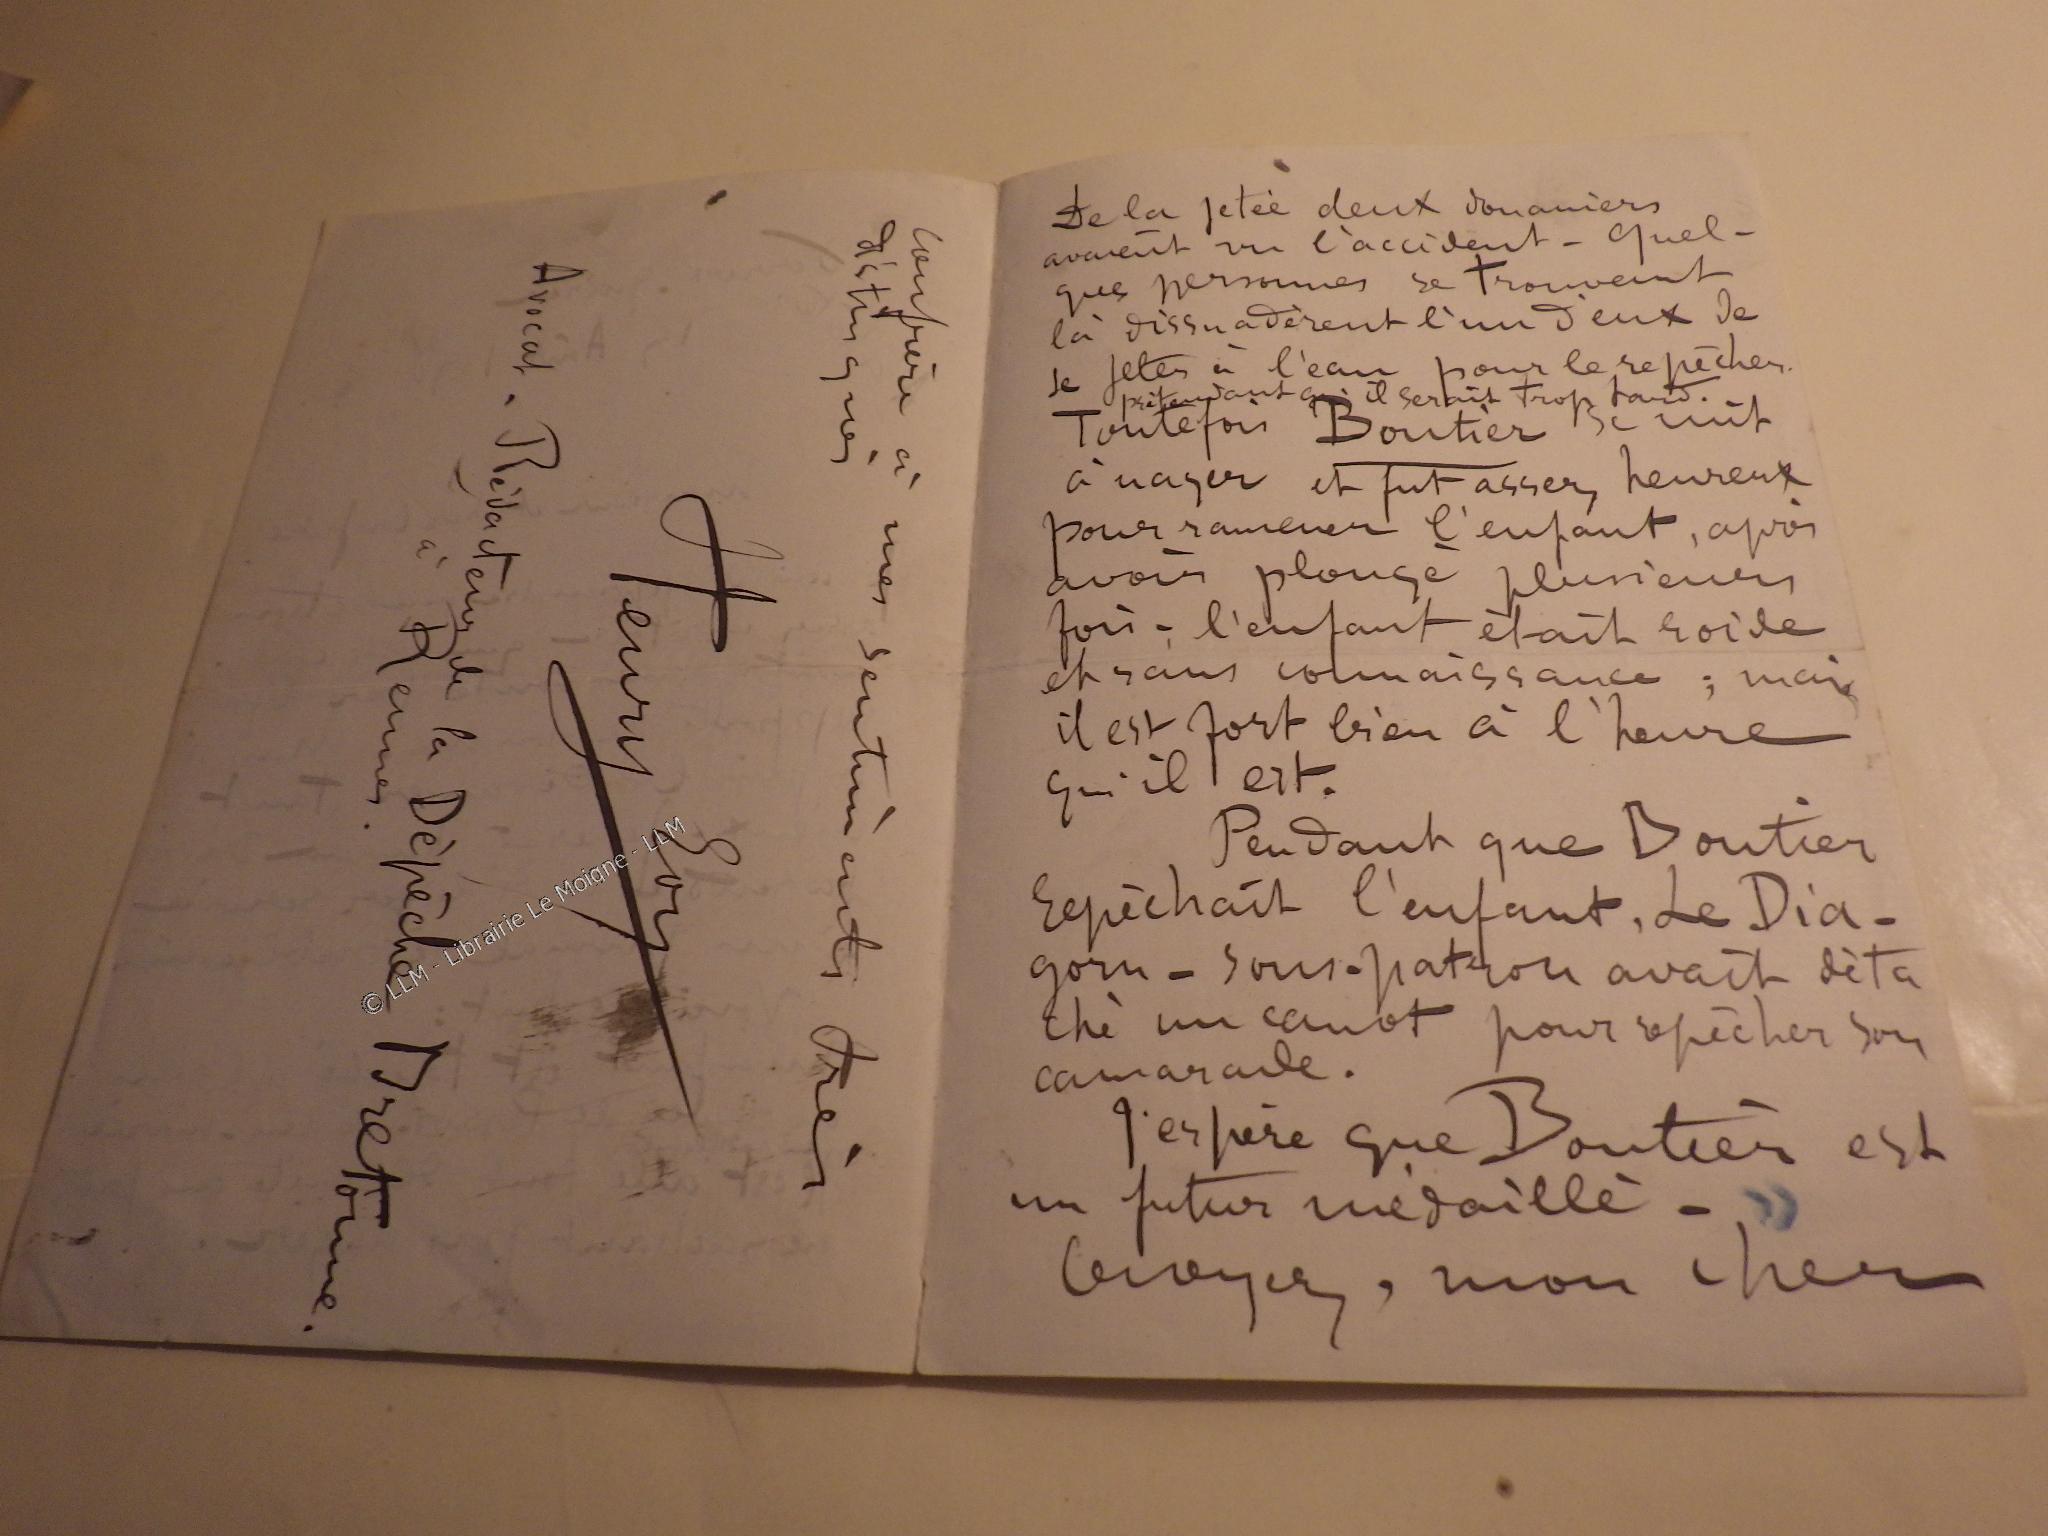 De la jetée deux douaniers
avaient vu l'accident - Quel-
ques personnes se trouvant
là dissuadèrent l'un d'eux de
se jeter à l'eau pour le repêcher.
prétendant qu'il serait trop tard.
Toutefois Boutier se mit
à nager et fut assez heureux
pour ramener l'enfant, après
avoir plongé plusieurs
fois - l'enfant était roide
et sans connaissance ; mais
il est fort bien à l'heure
qu'il est.
Pendant que Boutier
repêchait l'enfant, Le Dia-
gorn - sous-patron avait déta
ché un canot pour repêcher son
camarade.
J'espère que Boutier est
un futur médaillé - »
Croyez, mon cher
Confrère à mes sentiments très
distingués
Henry
Avocat. Rédacteur de la Dépêche Bretonne.
à Rennes.
© LLM - Librairie Le Moigne - LLM